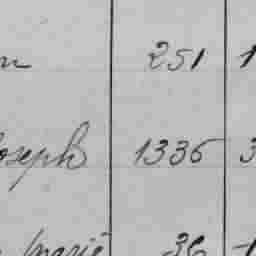 251 1
Joseph 1336 3
Marie 36 1